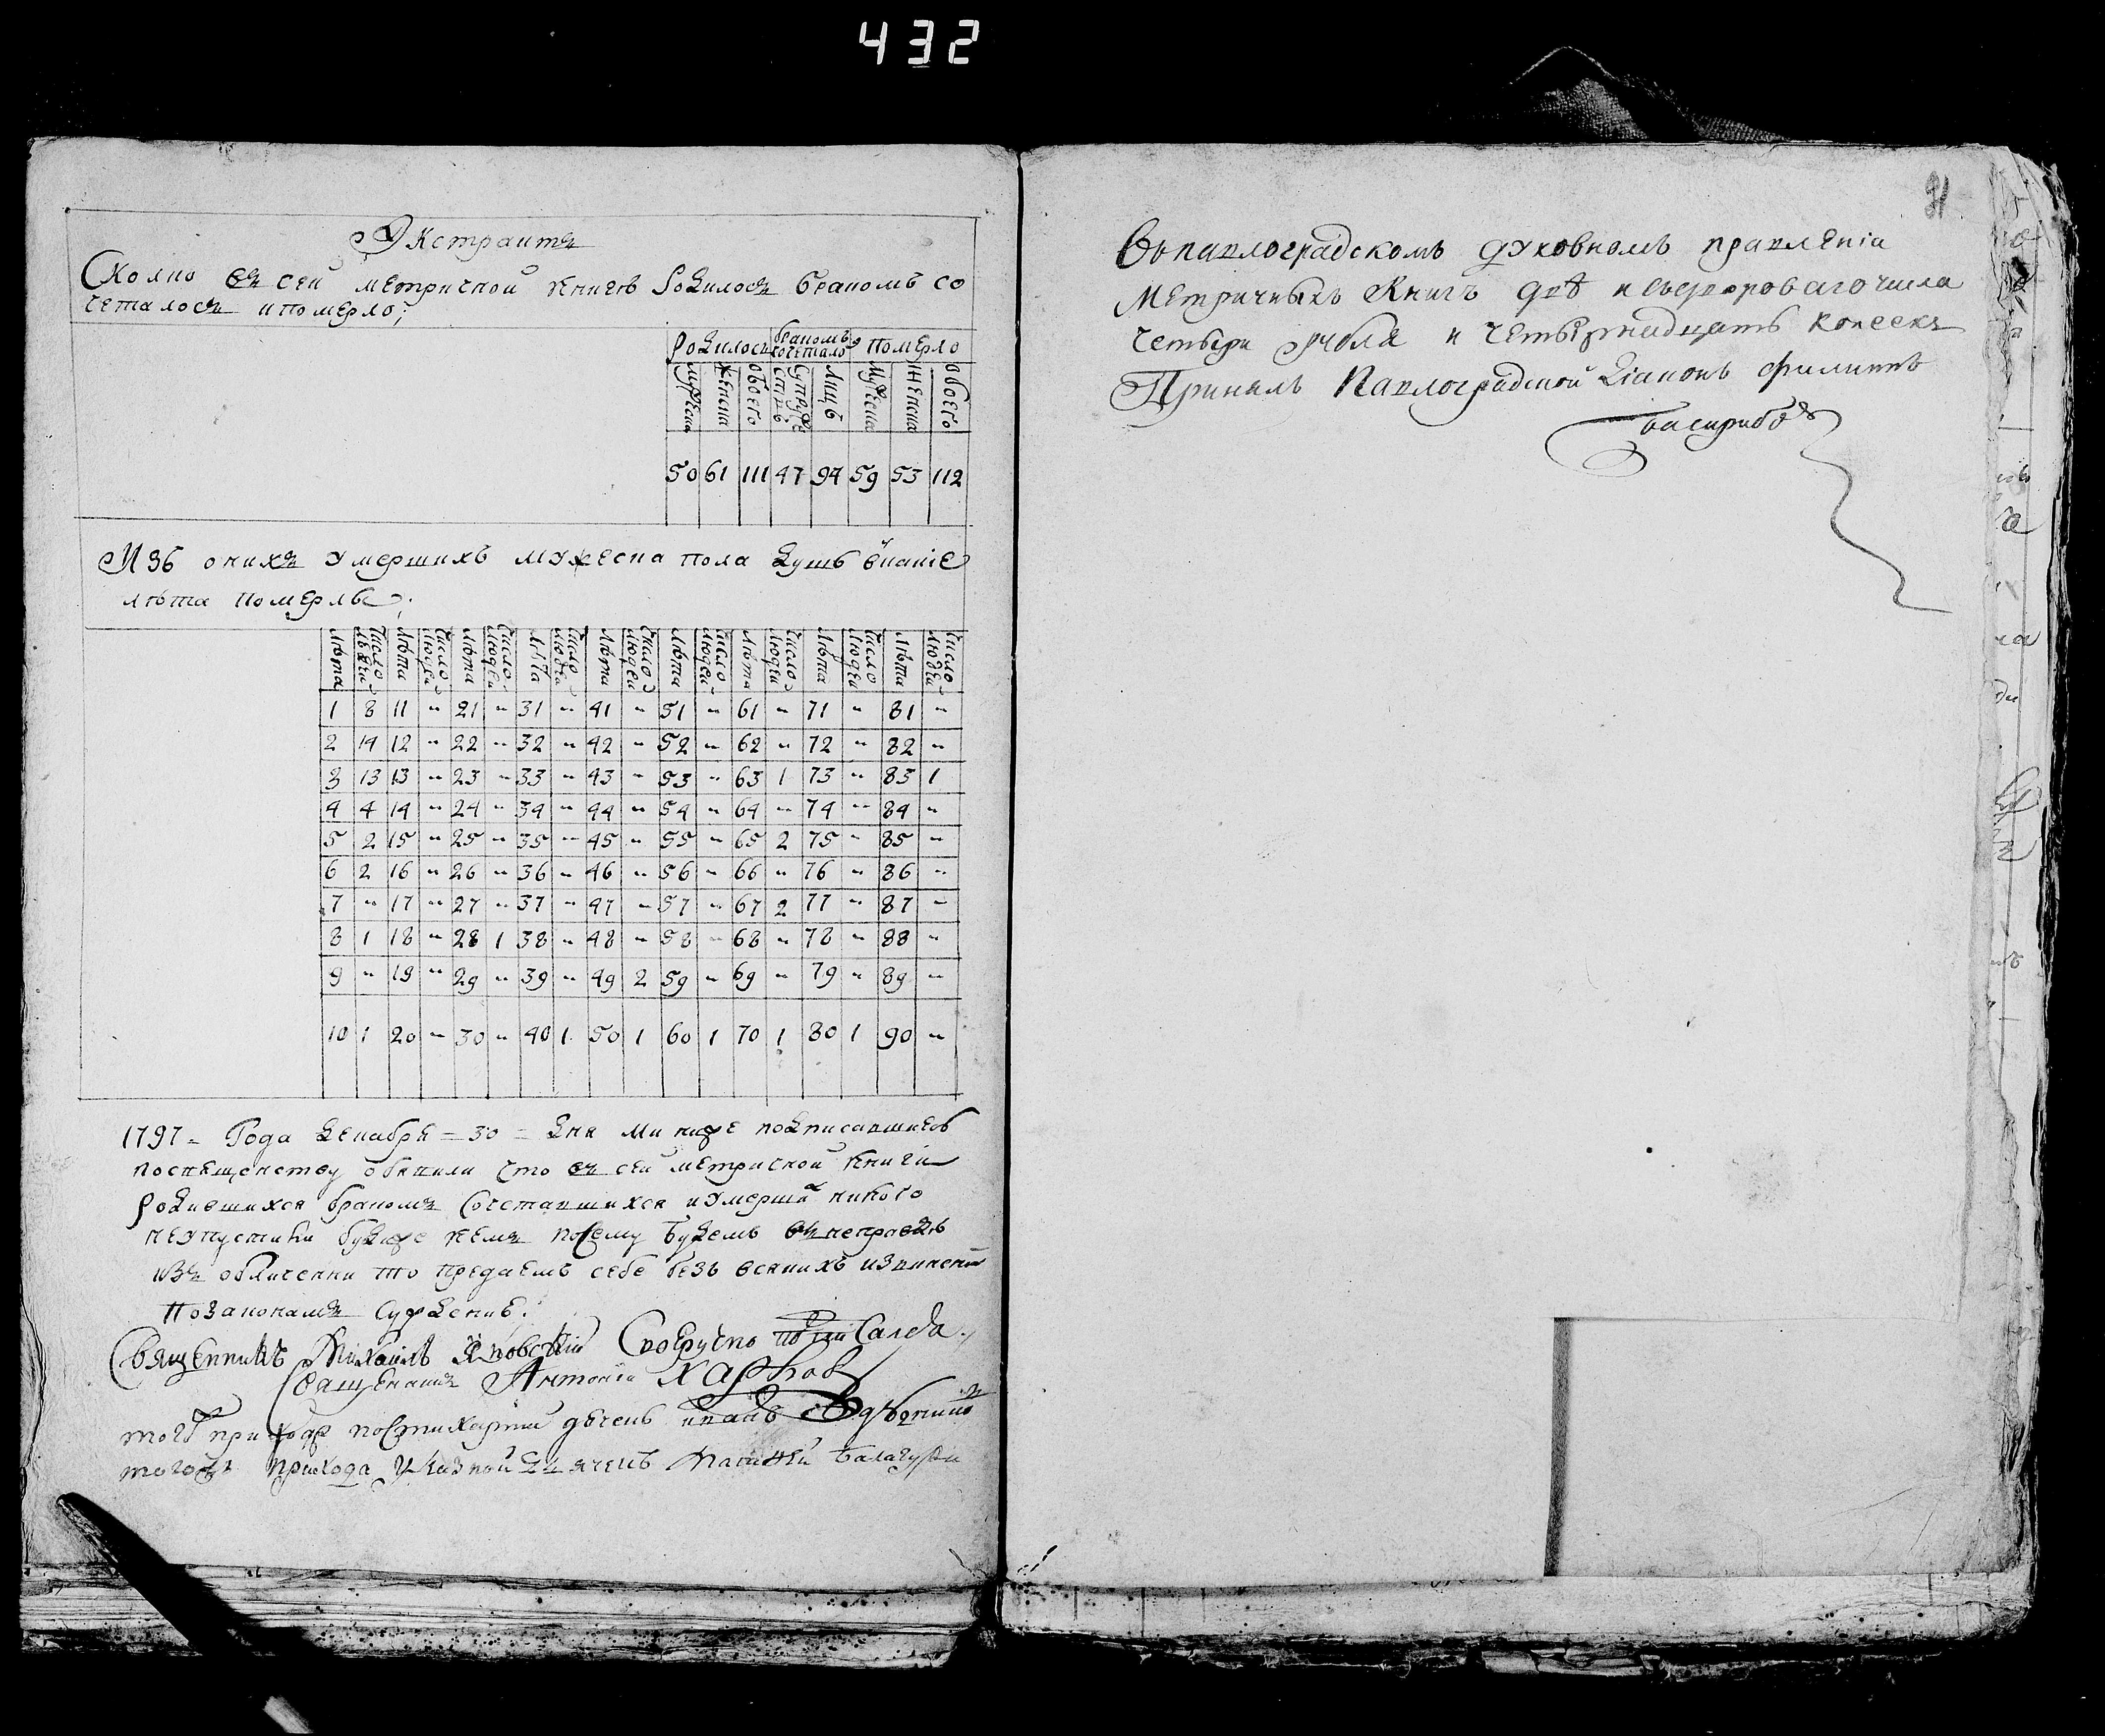 432
Экстрактъ
Сколко въ сей метричной книгѣ родилось бракомъ со
четалось и померло;
родилось бракомъ сочеталось померло
мужеска женска обоего супружествъ лицъ мужеска женска обоего
50 61 111 47 94 59 53 112
Изъ онихъ умершихъ мужеска пола душъ вкакіе
лѣта померлы;
лѣта число людей лѣта число людей лѣта число людей лѣта число людей лѣта число людей лѣта число людей лѣта число людей лѣта число людей лѣта число людей
1 8 11 " 21 " 31 " 41 " 51 " 61 " 71 " 81 "
2 14 12 " 22 " 32 " 42 " 52 " 62 " 72 " 82 "
3 13 13 " 23 " 33 " 43 " 53 " 63 1 73 " 83 1
4 4 14 " 24 " 34 " 44 " 54 " 64 " 74 " 84 "
5 2 15 " 25 " 35 " 45 " 55 " 65 2 75 " 85 "
6 2 16 " 26 " 36 " 46 " 56 " 66 " 76 " 86 "
7 " 17 " 27 " 37 " 47 " 57 " 67 2 77 " 87 "
8 1 18 " 28 1 38 " 48 " 58 " 68 " 78 " 88 "
9 " 19 " 29 " 39 " 49 2 59 " 69 " 79 " 89 "
10 1 20 " 30 " 40 1 50 1 60 1 70 1 80 1 90 "
1797 = Года декабря = 30 = дня ми ниже подписавшиесь
посвященству обявили что въ сей метричной книги
родившихся бракомъ сочетавшихся и умершихъ никого
неупустили будеже кемъ посему будемъ внеправдѣ
изъ обличенни то предаемъ себе безъ всякихъ извиненій
позаконамъ сужденив.
Священникъ Михаилъ Яновскій своеручно подписалса.
Священникъ Антоній Харков
того приходу дячокъ Иванъ
тогожъ прихода указной дячекъ Матвей
31
Въ павлоградскомъ духовномъ правленіи
Метричныхъ книгъ двѣ исъ него числа
четыри рубля и четырнадцать копеекъ
Принялъ Павлоградской діаконъ Филиппъ